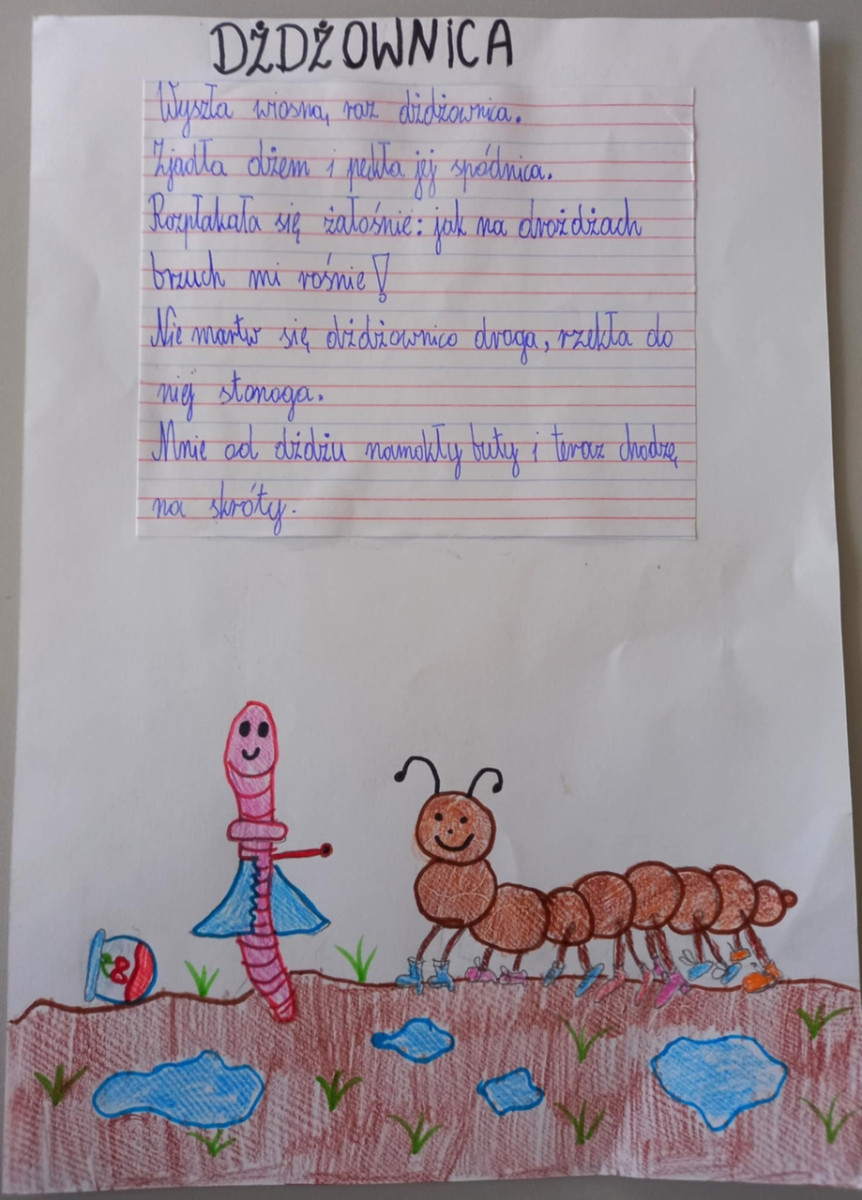 DŻDŻOWNICA
Wyszła wiosną raz dżdżownica.
Zjadła dżem i pękła jej spódnica.
Rozpłakała się żałośnie: jak na drożdżach
brzuch mi rośnie!
Nie martw się dżdżownico droga, rzekła do
niej stonoga.
Mnie od dżdżu namokły buty i teraz chodzę
na skróty.